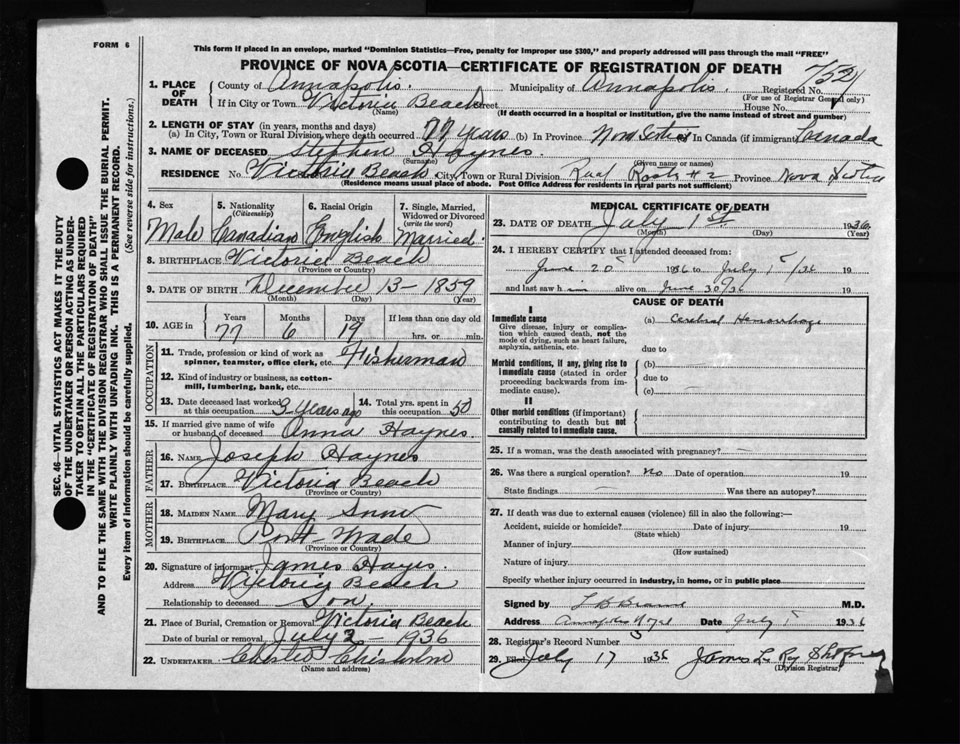 FORM 6
This form if placed in an envelope, marked "Dominion Statistics—Free, penalty for improper use $300," and properly addressed will pass through the mail "FREE"
PROVINCE OF NOVA SCOTIA—CERTIFICATE OF REGISTRATION OF DEATH
1. PLACE OF DEATH County of Annapolis. Municipality of Annapolis. Registered No.
(For use of Registrar General only)
If in City or Town Victoria Beach Street House No.
(Name)
(If death occurred in a hospital or institution, give the name instead of street and number)
2. LENGTH OF STAY (in years, months and days)
(a) In City, Town or Rural Division where death occurred 77 years (b) In Province Nova Scotia In Canada (if immigrant) Canada
3. NAME OF DECEASED Stephen Haynes.
(Surname) (Given name or names)
RESIDENCE No. Victoria Beach City, Town or Rural Division Rual Route # 2 Province Nova Scotia
(Residence means usual place of abode. Post Office Address for residents in rural parts not sufficient)
4. Sex 5. Nationality (Citizenship) 6. Racial Origin 7. Single, Married, Widowed or Divorced (write the word)
Male Canadian English Married.
8. BIRTHPLACE Victoria Beach
(Province or Country)
9. DATE OF BIRTH December 13 - 1859
(Month) (Day) (Year)
10. AGE in Years Months Days If less than one day
77 6 19 hrs. or min.
OCCUPATION
11. Trade, profession or kind of work as spinner, teamster, office clerk, etc. Fisherman
12. Kind of industry or business, as cotton-mill, lumbering, bank, etc.
13. Date deceased last worked at this occupation 3 years ago 14. Total yrs. spent in this occupation 50
15. If married give name of wife or husband of deceased Anna Haynes.
FATHER
16. NAME Joseph Haynes
17. BIRTHPLACE Victoria Beach
(Province or Country)
MOTHER
18. MAIDEN NAME Mary
19. BIRTHPLACE Port Wade
(Province or Country)
20. Signature of informant James Hayes.
Address Victoria Beach
Relationship to deceased Son
21. Place of Burial, Cremation or Removal Victoria Beach
Date of burial or removal July 2 - 1936
22. UNDERTAKER Chester Chisholm
(Name and address)
MEDICAL CERTIFICATE OF DEATH
23. DATE OF DEATH July 1st 1936
(Month) (Day) (Year)
24. I HEREBY CERTIFY that I attended deceased from:
June 20 1936 to July 1 /36 19
and last saw him alive on June 30/36 19
CAUSE OF DEATH
I
Immediate cause (a) Cerebral Hemorrhage
Give disease, injury or complication which caused death, not the mode of dying, such as heart failure, asphyxia, asthenia, etc.
due to
Morbid conditions, if any, giving rise to immediate cause (stated in order proceeding backwards from immediate cause).
(b)
due to
(c)
II
Other morbid conditions (if important) contributing to death but not causally related to immediate cause.
25. If a woman, was the death associated with pregnancy? —
26. Was there a surgical operation? no Date of operation 19
State findings — Was there an autopsy?
27. If death was due to external causes (violence) fill in also the following:—
Accident, suicide or homicide? Date of injury 19
(State which)
Manner of injury
(How sustained)
Nature of injury
Specify whether injury occurred in industry, in home, or in public place
Signed by M.D.
Address Annapolis Royal Date July 1 1936
28. Registrar's Record Number 3
29. Filed July 17 1936 James
(Division Registrar)
SEC. 46—VITAL STATISTICS ACT. MAKES IT THE DUTY
OF THE UNDERTAKER OR PERSON ACTING AS UNDER-
TAKER TO OBTAIN ALL THE PARTICULARS REQUIRED
IN THE "CERTIFICATE OF REGISTRATION OF DEATH"
AND TO FILE THE SAME WITH THE DIVISION REGISTRAR WHO SHALL ISSUE THE BURIAL PERMIT.
WRITE PLAINLY WITH UNFADING INK. THIS IS A PERMANENT RECORD.
Every item of information should be carefully supplied. (See reverse side for instructions.)